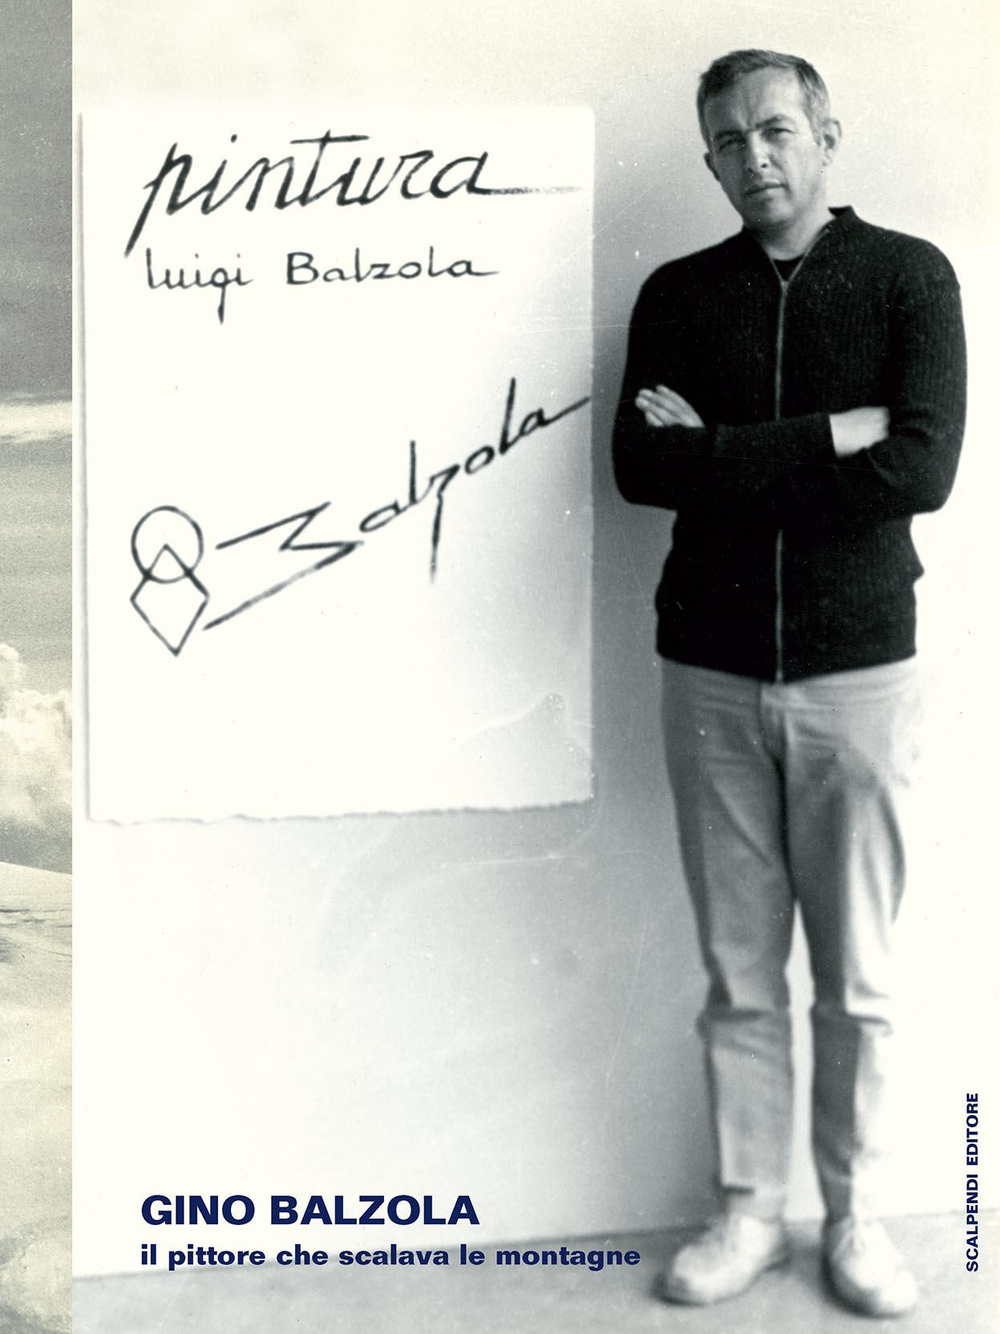 pintura
luigi Balzola
Balzola
GINO BALZOLA
il pittore che scalava le montagne
SCALPENDI EDITORE